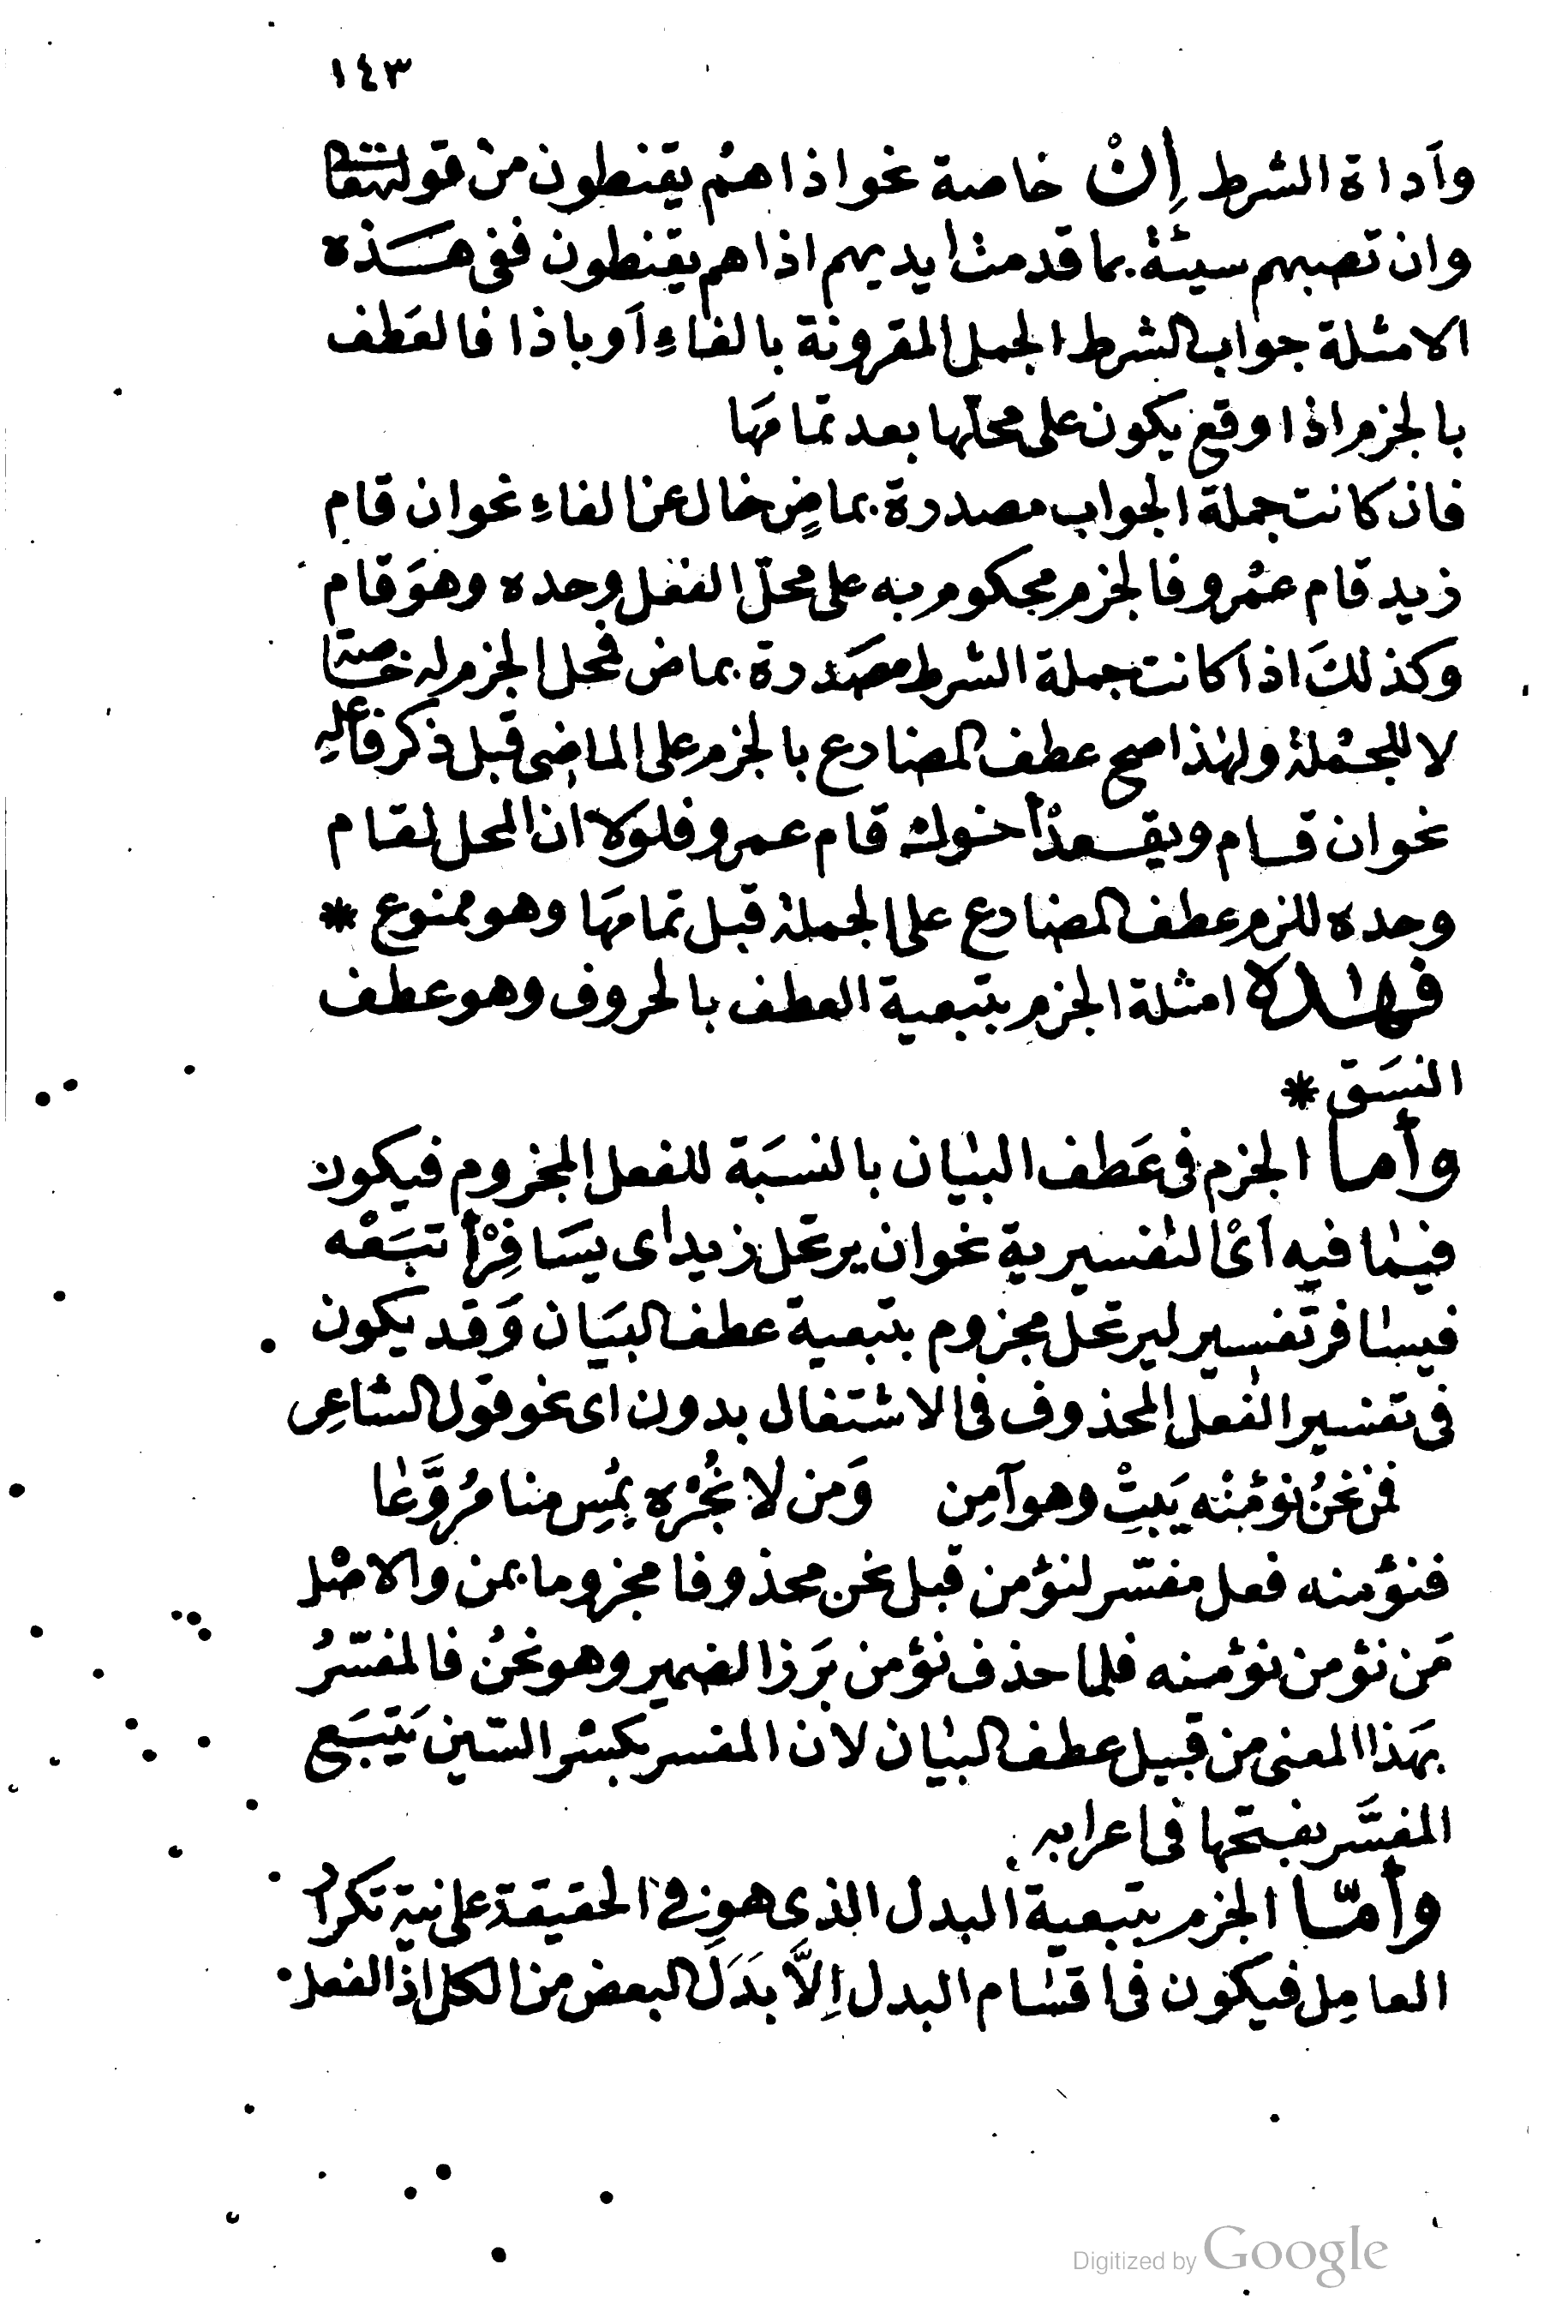 ١٤٣
وأداة الشرط إنْ خاصة نحو اذا همُ يقنطون من قوله تعالى
وان تصبهم سيئة بما قدمت ايديهم اذا هم يقنطون ففى هـذه
الامثلة جواب الشرط الجمل المقرونة بالفاءِ أو باذا فالعَطف
بالجزم اذا وقع يكون على محلّها بعد تمامهَا
فان كانت جملة الجواب مصدرة بماضٍ خال عن الفاءِ نحو ان قام
زيد قام عمْرو فالجزم محكوم به على محلّ الفعل وحده وهوَ قام
وكذلكَ اذا كانت جملة الشرط مصَدرة بماض فمحل الجزم له خـاصة
لا للجمْلة ولهٰذا صح عطف المضارع بالجزم على الماضِى قبل ذكر فاعله
نحو ان قـام ويقـعدْ أخـواك قام عمرو فلوَلا ان المحل لقـام
وحده للزم عطف المضارع على الجملة قبل تمامهَا وهو ممنوع *
فهـٰذه امثلة الجزم بتبعية العطف بالحروف وهو عطف
النسَق *
وأما الجزم فى عَطف البيٰان بالنسبَة للفعل المجزوم فيكون
فيمٰا فيه أىْ التفسيرية نحو ان يرتحل زيد اى يسَافِرْ أتبَعْه
فيسٰافر تفسير ليرتحل مجزوم بتبعية عطف البيَان وَقد يكون
فى تفسير الفعل المحذوف فى الاشتغال بدون اى نحو قول الشاعِر
فمن نحنُ نؤمنْه يَبِتْ وهو آمِن وَمن لا نُجْرْه يمُسِ منا مُروَّعٰا
فنؤمنه فعل مفسّر لنؤمن قبل نحن محذوفا مجزوما بمن والاصْل
مَن نؤمن نؤمنه فلما حذف نؤمن بَرز الضمير وهو نحنُ فالمفسّرُ
بهَذا المعنى من قبيل عطف البيٰان لان المفسر بكسْر السّين يَتبَع
المفسَّر بفتحها فى اعرابه
وأمّـا الجزم بتبعية البدل الذى هو فى الحقيقة على نية تكرار
العامِل فيكون فى اقسٰام البدل إلاَّ بدَلَ البعض من الكل اذ الفعل
Digitized by Google